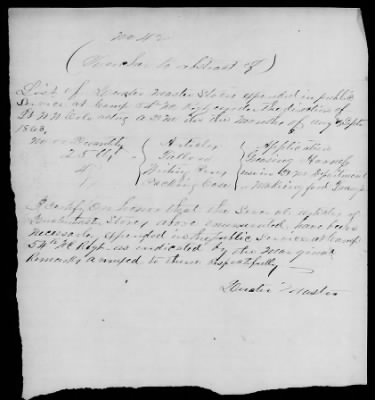 No 42
(Voucher to abstract L)
List of Quarter Master Stores expended in public
service at Camp 54 NC Regt under the direction of
acting A.Q.M. in the Months of Aug & Sept
1863,
No or Quantity { Articles { Application
25 lbs { Tallow { Greasing Harness
4 { Writing Pens { use in Q M Department
1 { Packing Case { Making feed Trough
I certify on honor that the several articles of
Quarter Master Stores above enumerated, have been
necessarily expended in the public service at Camp
54th NC Regt as indicated by the marginal
remarks annexed to them respectfully
Quarter Master